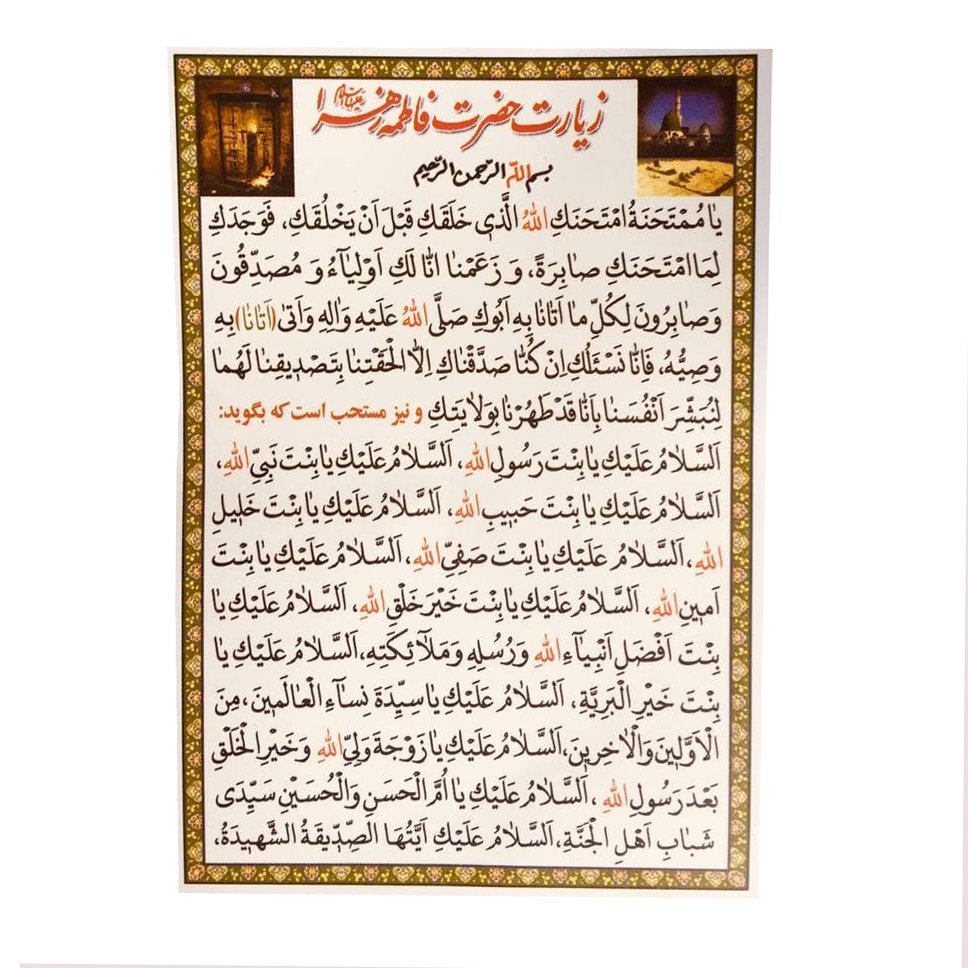 زیارت حضرت فاطمه زهرا
بسم الله الرحمن الرحیم
يٰا مُمْتَحَنَةُ امْتَحَنَكِ اللهُ الَّذي خَلَقَكِ قَبْلَ اَنْ يَخْلُقَكِ، فَوَجَدَكِ
لِمَا امْتَحَنَكِ صٰابِرَةً، وَ زَعَمْنٰا اَنّٰا لَكِ اَوْلِيٰآءُ وَ مُصَدِّقُونَ
وَ صٰابِرُونَ لِكُلِّ مٰا اَتٰانٰا بِهِ اَبُوكِ صَلَّى اللهُ عَلَيْهِ وَ اٰلِهِ وَ اَتىٰ (اَتٰانٰا) بِهِ
وَصِيُّهُ، فَاِنّٰا نَسْئَلُكِ اِنْ كُنّٰا صَدَّقْنٰاكِ اِلّٰا اَلْحَقْتِنٰا بِتَصْديقِنٰا لَهُمٰا
لِنُبَشِّرَ اَنْفُسَنٰا بِاَنّٰا قَدْ طَهُرْنٰا بِوِلٰايَتِكِ و نیز مستحب است که بگوید:
اَلسَّلٰامُ عَلَيْكِ يٰا بِنْتَ رَسُولِ اللهِ، اَلسَّلٰامُ عَلَيْكِ يٰا بِنْتَ نَبِيِّ اللهِ،
اَلسَّلٰامُ عَلَيْكِ يٰا بِنْتَ حَبيبِ اللهِ، اَلسَّلٰامُ عَلَيْكِ يٰا بِنْتَ خَليلِ
اللهِ، اَلسَّلٰامُ عَلَيْكِ يٰا بِنْتَ صَفِيِّ اللهِ، اَلسَّلٰامُ عَلَيْكِ يٰا بِنْتَ
اَمينِ اللهِ، اَلسَّلٰامُ عَلَيْكِ يٰا بِنْتَ خَيْرَ خَلْقِ اللهِ، اَلسَّلٰامُ عَلَيْكِ يٰا
بِنْتَ اَفْضَلِ اَنْبِيٰآءِ اللهِ وَ رُسُلِهِ وَ مَلٰآئِكَتِهِ، اَلسَّلٰامُ عَلَيْكِ يٰا
بِنْتَ خَيْرِ الْبَرِيَّةِ، اَلسَّلٰامُ عَلَيْكِ يٰا سَيِّدَةَ نِسٰآءِ الْعٰالَمينَ، مِنَ
الْاَوَّلينَ وَالْاٰخِرينَ، اَلسَّلٰامُ عَلَيْكِ يٰا زَوْجَةَ وَلِيِّ اللهِ وَ خَيْرِ الْخَلْقِ
بَعْدَ رَسُولِ اللهِ، اَلسَّلٰامُ عَلَيْكِ يٰا اُمَّ الْحَسَنِ وَالْحُسَيْنِ سَيِّدَى
شَبٰابِ اَهْلِ الْجَنَّةِ، اَلسَّلٰامُ عَلَيْكِ اَيَّتُهَا الصِّدّيقَةُ الشَّهيدَةُ،